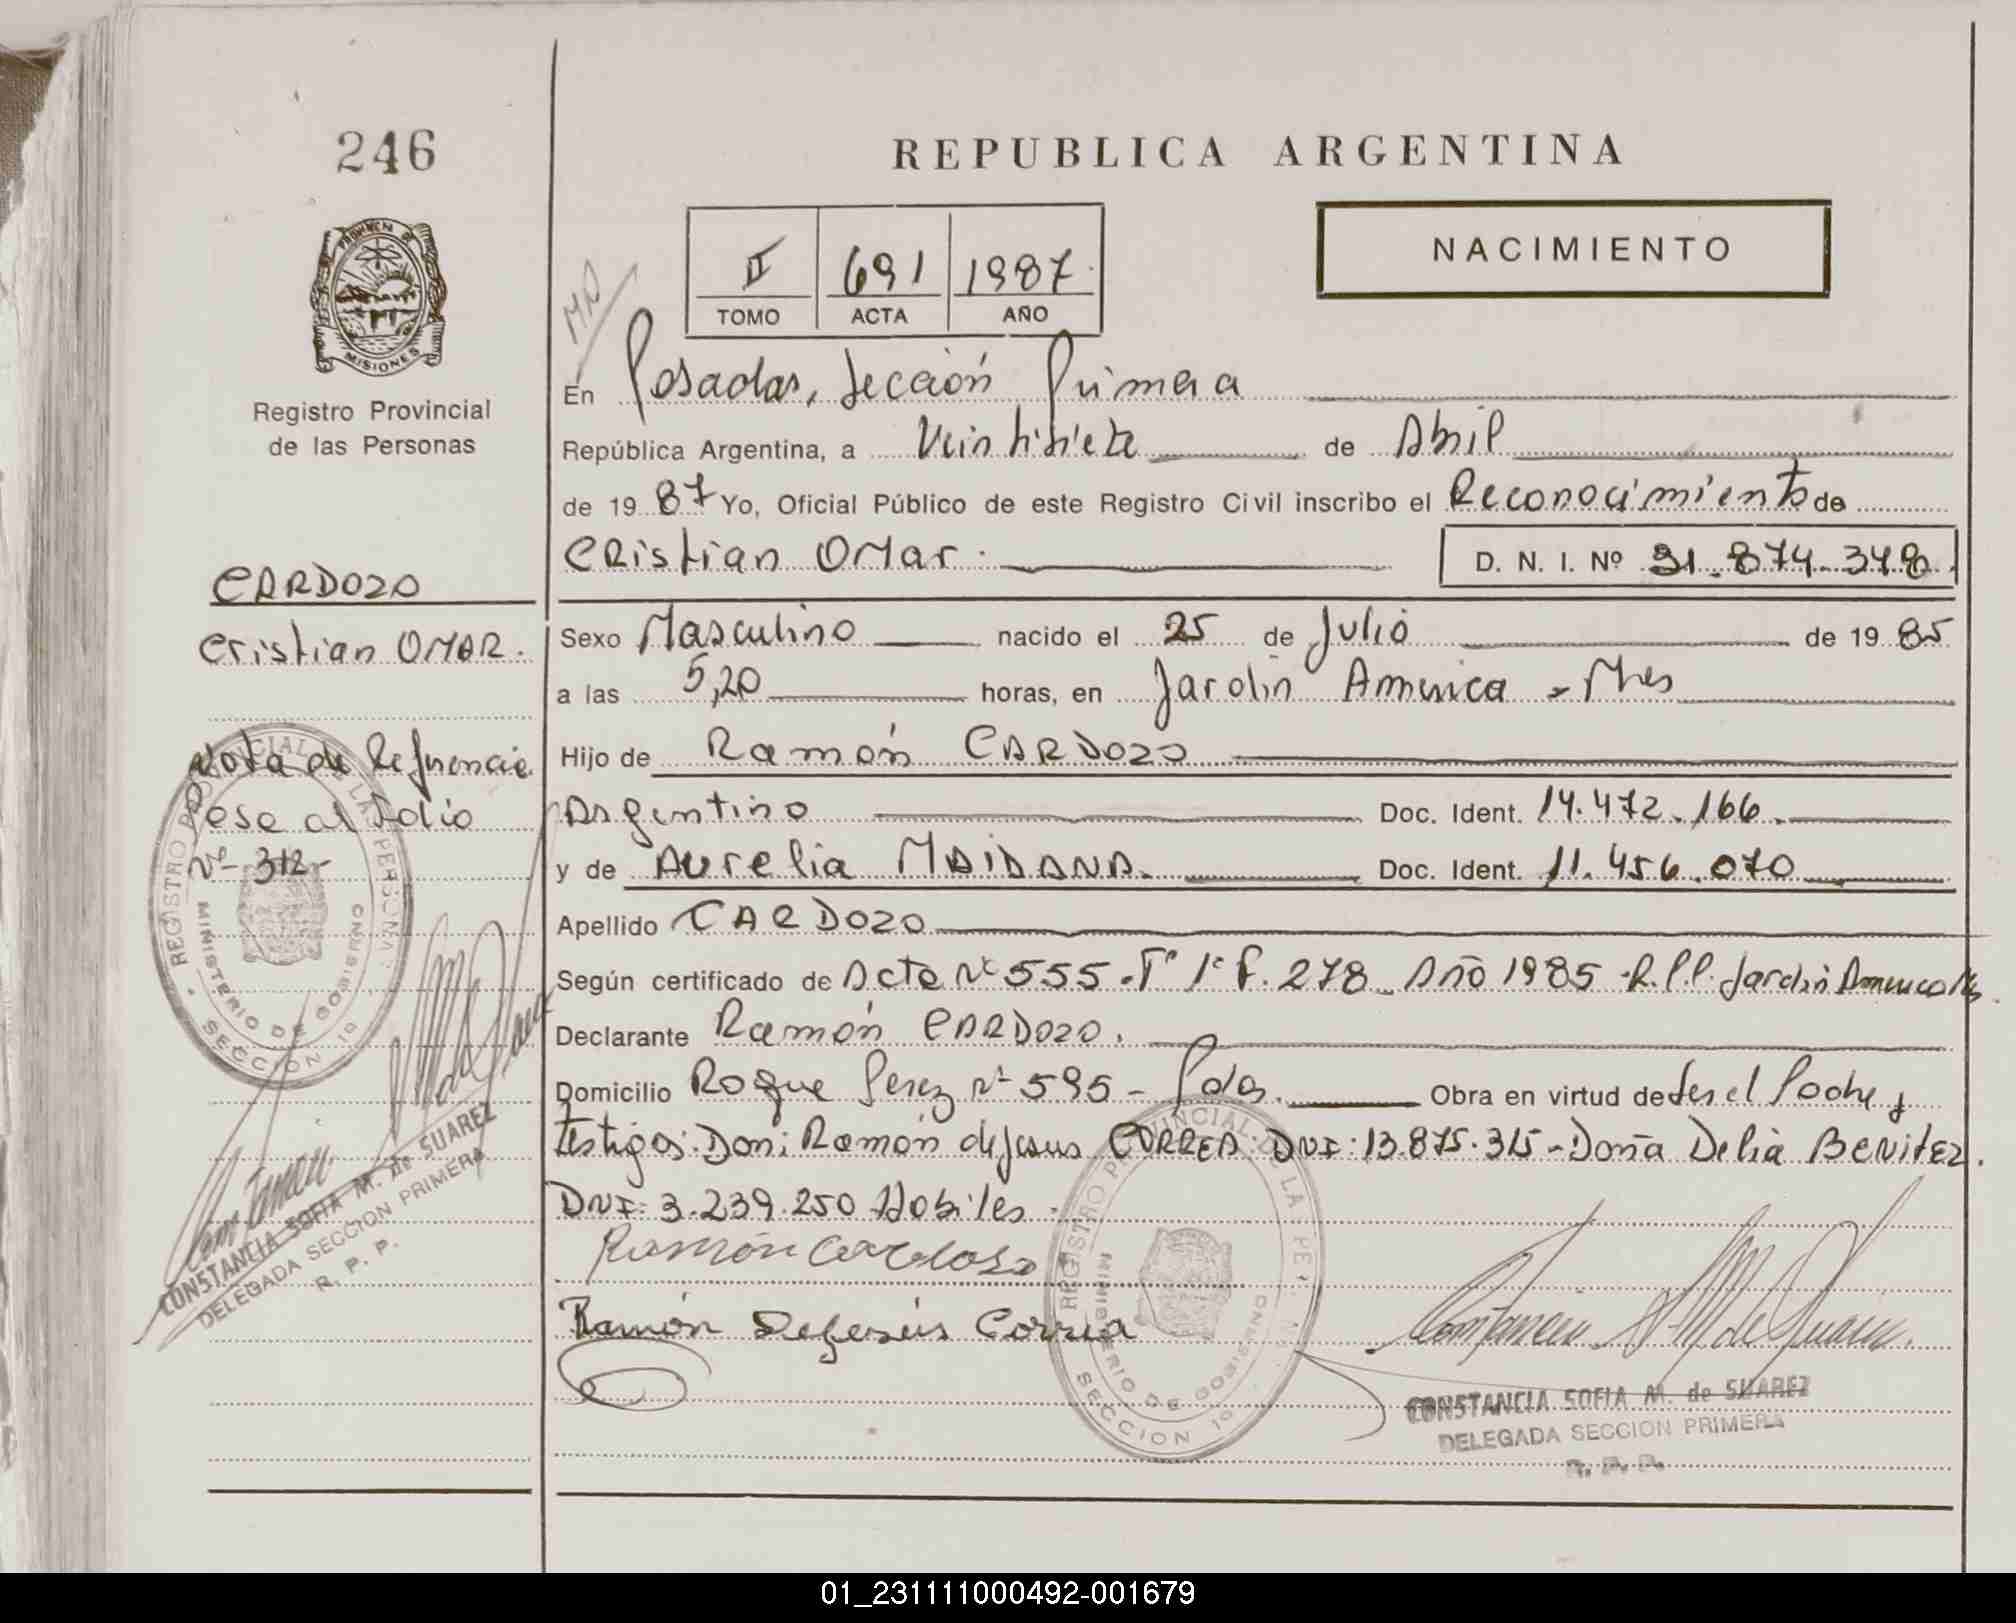 246
REPUBLICA ARGENTINA
NACIMIENTO
II 691 1987
TOMO ACTA AÑO
PROVINCIA DE
MISIONES
Registro Provincial
de las Personas
CARDOZO
Cristian OMAR.
Nota de Referencia
Pase al Folio
Nº 312-
REGISTRO PROVINCIAL DE LA PERSONA
MINISTERIO DE GOBIERNO
SECCION 1º
CONSTANCIA SOFIA M. de SUAREZ
DELEGADA SECCION PRIMERA
R. P. P.
En Posadas, Sección Primera
República Argentina, a Veintisiete de Abril
de 1987 Yo, Oficial Público de este Registro Civil inscribo el Reconocimiento de
Cristian OMar. D. N. I. Nº 31.874.348
Sexo Masculino nacido el 25 de Julio de 1985
a las 5,20 horas, en Jardin America - Mnes
Hijo de Ramón CARDOZO
Argentino Doc. Ident. 14.472.166.
y de Aurelia MAIDANA. Doc. Ident. 11.456.070
Apellido CARDOZO
Según certificado de Acta Nº 555 - Tº 1º F. 278 Año 1985 - R.P.P. Jardin America Mnes.
Declarante Ramón CARDOZO.
Domicilio Roque Perez Nº 595 - Pdas. Obra en virtud de ser el Padre y
testigos: Don: Ramón de Jesus CORREA: DNI: 13.875.315 - Doña Delia BENITEZ.
DNI: 3.239.250 Habiles.
Ramón Cardoso
Ramón Dejesús Correa
REGISTRO PROVINCIAL DE LA PE
MINISTERIO DE GOBIERNO
SECCION 1º
CONSTANCIA SOFIA M. de SUAREZ
DELEGADA SECCION PRIMERA
R. P. P.
01_231111000492-001679